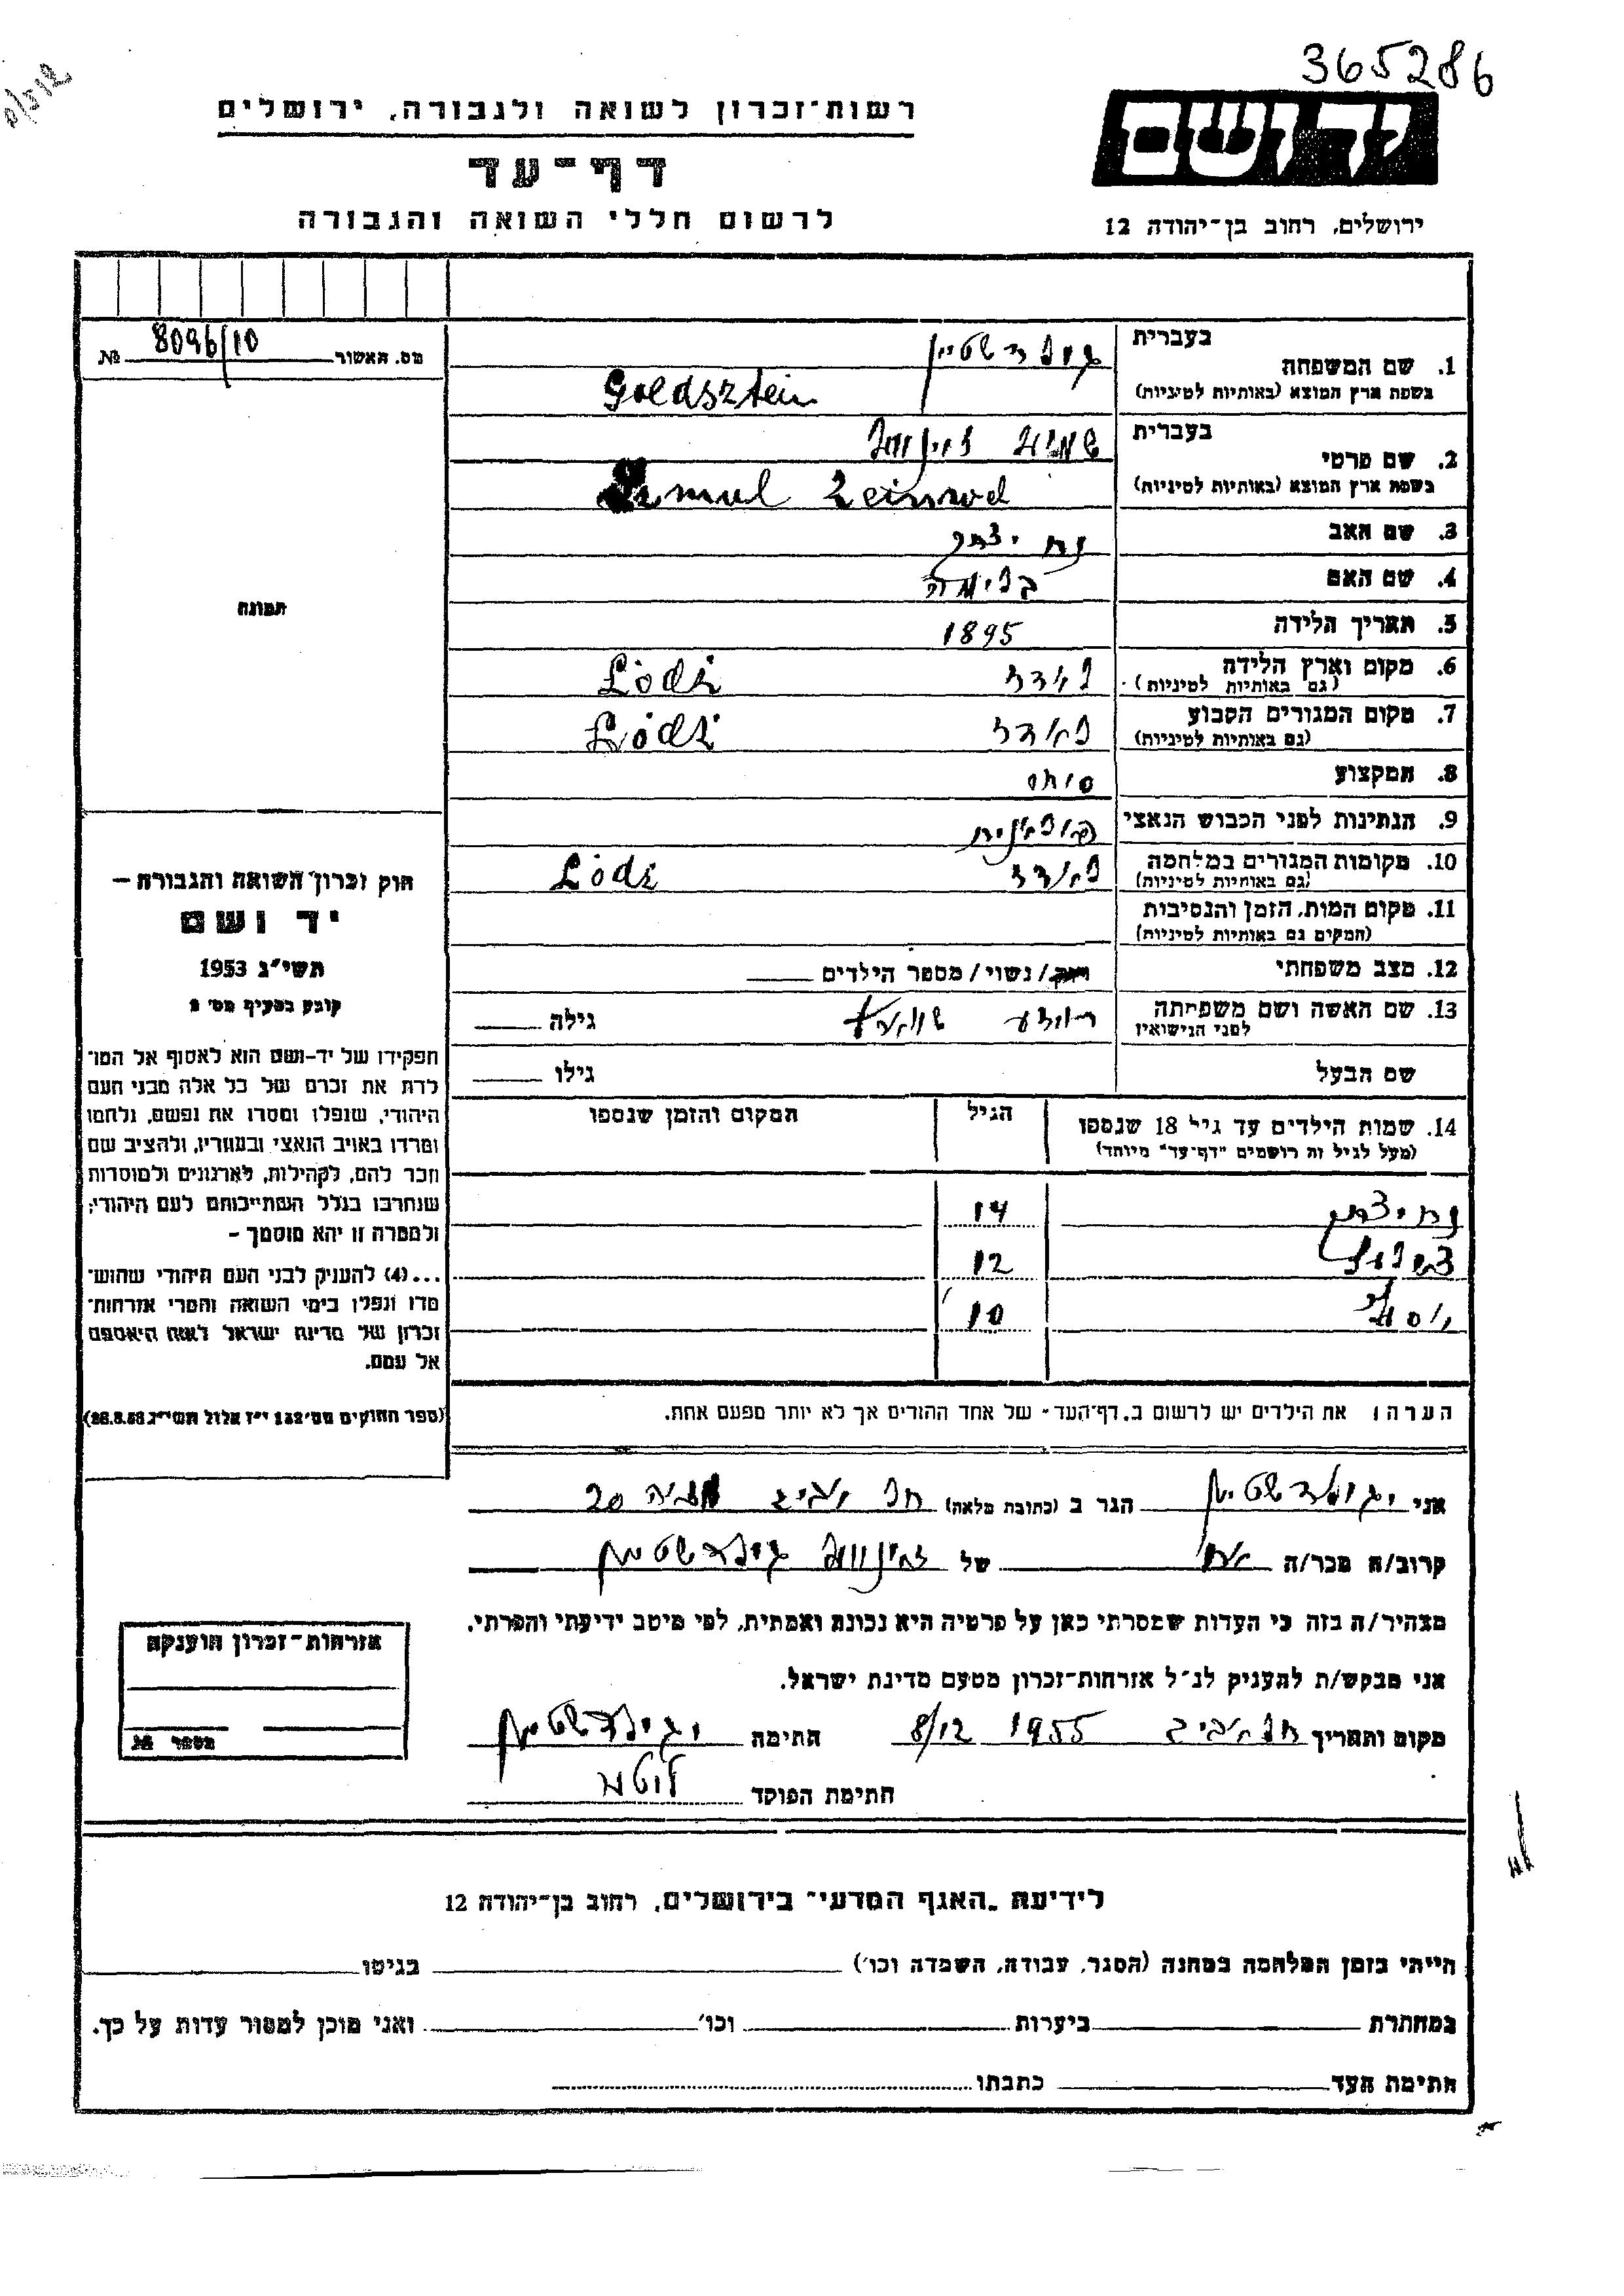 365286
רשות־זכרון לשואה ולגבורה, ירושלים
יד ושם
דף־עד
לרשום חללי השואה והגבורה
ירושלים, רחוב בן־יהודה 12
מס. האשור 8096/10 №
בעברית
1. שם המשפחה
גולדשטיין
בשפת ארץ המוצא (באותיות לטיניות)
Goldsztein
בעברית
2. שם פרטי
בשפת ארץ המוצא (באותיות לטיניות)
3. שם האב
נח יצחק
4. שם האם
5. תאריך הלידה
1895
6. מקום וארץ הלידה
(גם באותיות לטיניות)
לודז Lódź
7. מקום המגורים הקבוע
(גם באותיות לטיניות)
לודז Lódź
8. המקצוע
סוחר
9. הנתינות לפני הכבוש הנאצי
פולנית
10. מקומות המגורים במלחמה
(גם באותיות לטיניות)
לודז Lódź
11. מקום המות, הזמן והנסיבות
(המקום גם באותיות לטיניות)
12. מצב משפחתי
רוק/ נשוי/ מספר הילדים
13. שם האשה ושם משפחתה
לפני הנישואין
גילה
שם הבעל
גילו
14. שמות הילדים עד גיל 18 שנספו
(מעל לגיל זה רושמים "דף־עד" מיוחד)
הגיל
המקום והזמן שנספו
נח יצחק 14
12
10
הערה: את הילדים יש לרשום ב„דף־העד" של אחד ההורים אך לא יותר מפעם אחת.
תמונה
חוק זכרון השואה והגבורה —
יד ושם
תשי"ג 1953
קובע בסעיף מס' 2
תפקידו של יד-ושם הוא לאסוף אל המו־
לדת את זכרם של כל אלה מבני העם
היהודי, שנפלו ומסרו את נפשם, נלחמו
ומרדו באויב הנאצי ובעוזריו, ולהציב שם
וזכר להם, לקהילות, לארגונים ולמוסדות
שנחרבו בגלל השתייכותם לעם היהודי;
ולמטרה זו יהא מוסמך –
...(4) להעניק לבני העם היהודי שהוש־
מדו ונפלו בימי השואה והמרי אזרחות־
זכרון של מדינת ישראל לאות היאספם
אל עמם.
(ספר החוקים מס' 132 י"ז אלול תשי"ג 28.8.53)
אני י גולדשטיין הגר ב (כתובת מלאה) תל אביב 20
קרוב/ה מכר/ה אח של זיינוול גולדשטיין
מצהיר/ה בזה כי העדות שמסרתי כאן על פרטיה היא נכונה ואמתית, לפי מיטב ידיעתי והכרתי.
אני מבקש/ת להעניק לנ"ל אזרחות־זכרון מטעם מדינת ישראל.
מקום ותאריך תל אביב 8/12 1955 חתימה י גולדשטיין
חתימת הפוקד
אזרחות־זכרון הוענקה
מספר №
לידיעת „האגף המדעי" בירושלים, רחוב בן־יהודה 12
הייתי בזמן המלחמה במחנה (הסגר, עבודה, השמדה וכו') בגיטו
במחתרת ביערות וכו' ואני מוכן למסור עדות על כך.
חתימת העד כתבתו